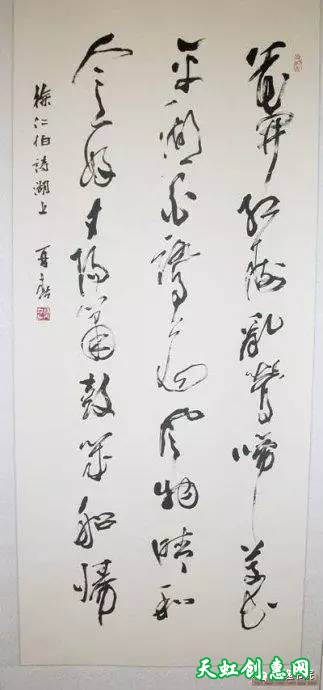 花開紅樹亂鶯啼草長
平湖白鷺飛風物晴和
人意好夕陽簫鼓幾船歸
徐仁伯詩湖上
天虹创意网